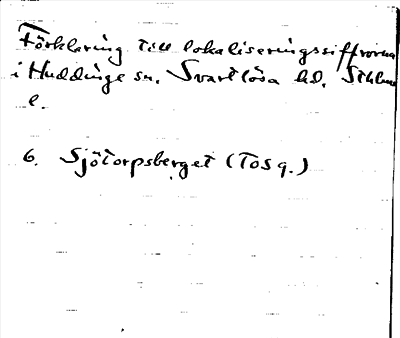 Förklaring till lokaliseringssiffrorna
i Huddinge sn. Svartlösa hd. Sthlms
l.
6. Sjötorpsberget (Tosq.)